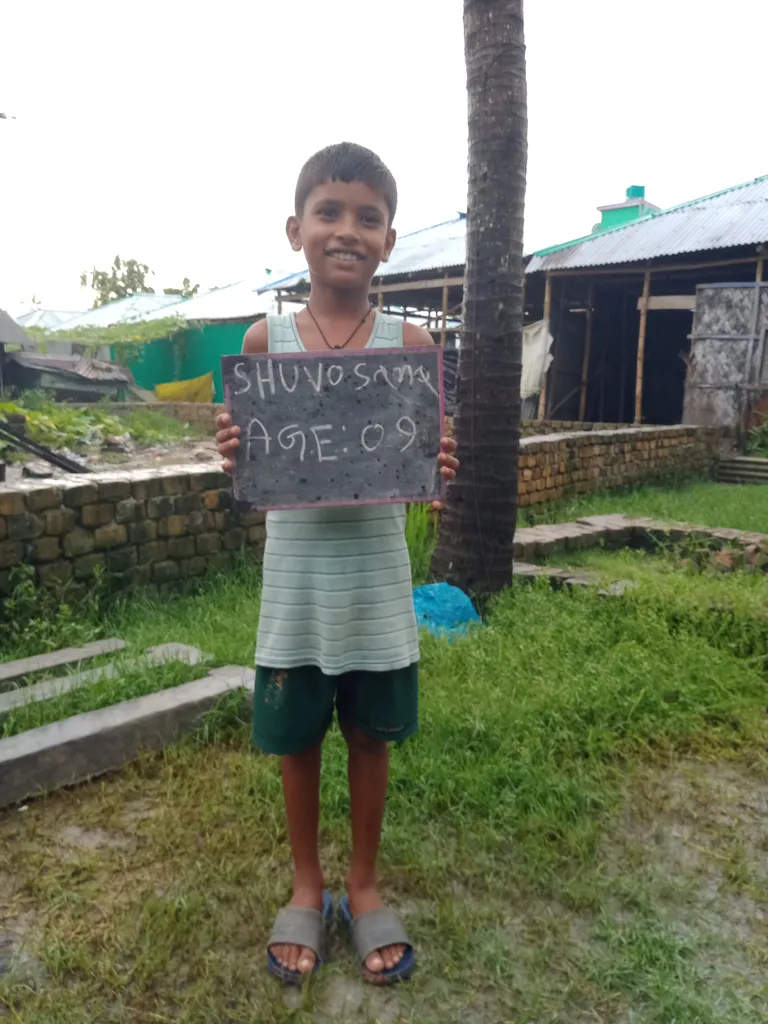 SHUVO Sana
AGE: 09